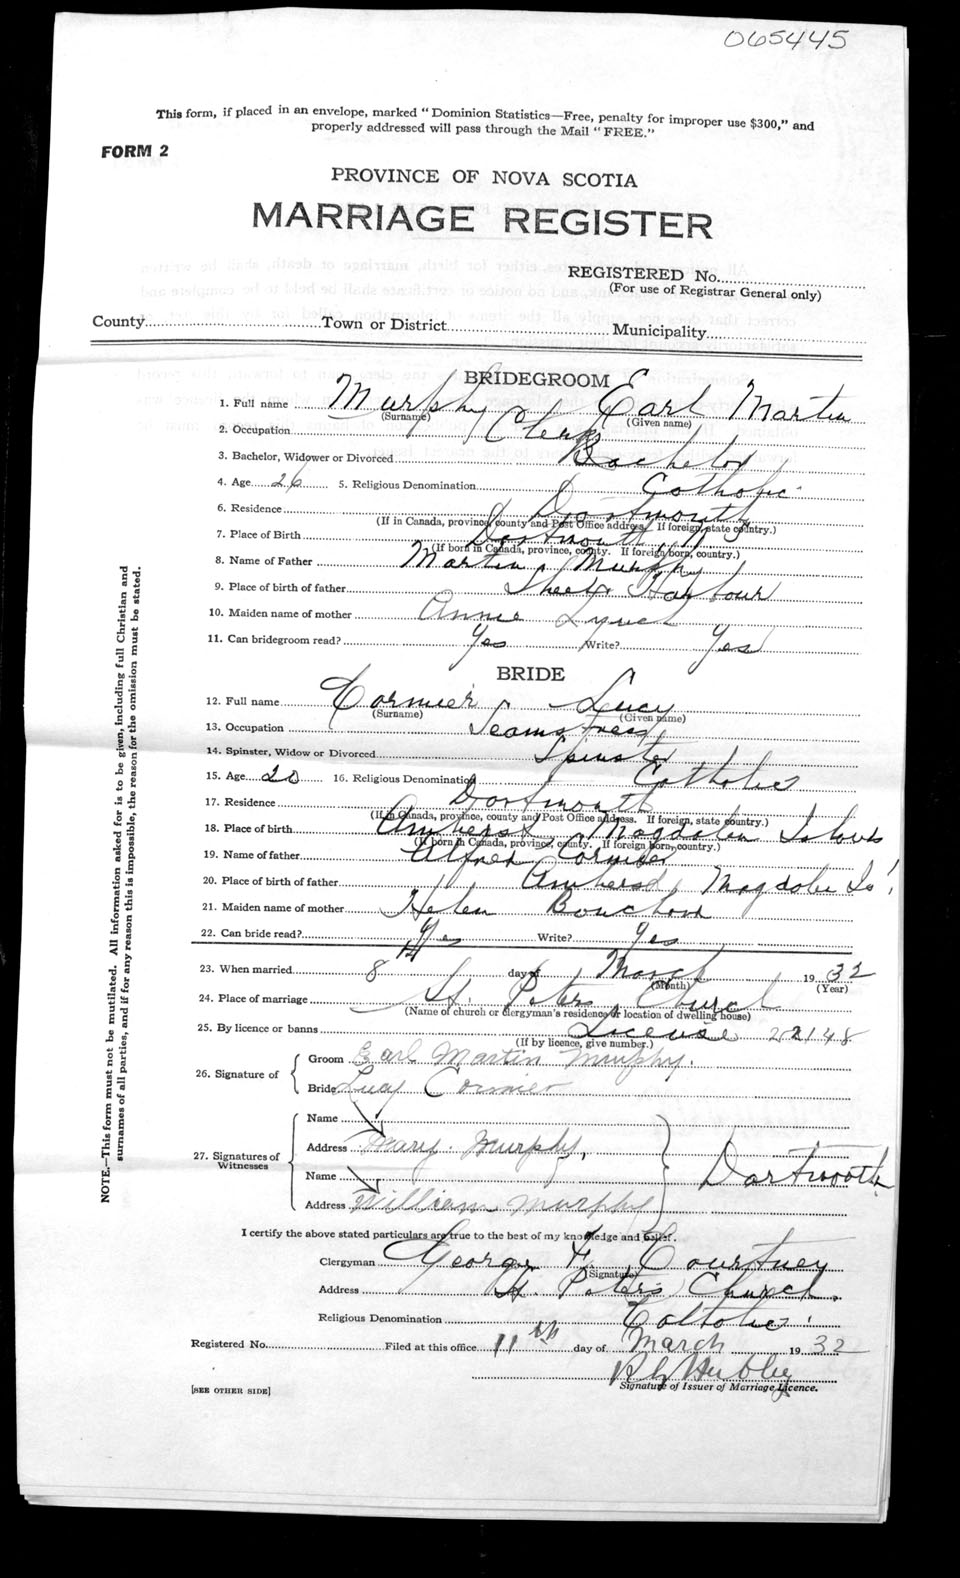 065445
This form, if placed in an envelope, marked "Dominion Statistics—Free, penalty for improper use $300," and
properly addressed will pass through the Mail "FREE."
FORM 2
PROVINCE OF NOVA SCOTIA
MARRIAGE REGISTER
REGISTERED No.
(For use of Registrar General only)
County Town or District Municipality
BRIDEGROOM
1. Full name Murphy Earl Martin
(Surname) (Given name)
2. Occupation Clerk
3. Bachelor, Widower or Divorced Bachelor
4. Age 26 5. Religious Denomination Catholic
6. Residence Dartmouth
(If in Canada, province, county and Post Office address. If foreign, state country.)
7. Place of Birth Dartmouth N S
(If born in Canada, province, county. If foreign born, country.)
8. Name of Father Martin Murphy
9. Place of birth of father Sheet Harbour
10. Maiden name of mother Annie Lynch
11. Can bridegroom read? Yes Write? Yes
BRIDE
12. Full name Cormier Lucy
(Surname) (Given name)
13. Occupation Seamstress
14. Spinster, Widow or Divorced Spinster
15. Age 20 16. Religious Denomination Catholic
17. Residence Dartmouth
(If in Canada, province, county and Post Office address. If foreign, state country.)
18. Place of birth Amherst, Magdalen Islands
(If born in Canada, province, county. If foreign born, country.)
19. Name of father Alfred Cormier
20. Place of birth of father Amherst, Magdalen Is.
21. Maiden name of mother Helen
22. Can bride read? Yes Write? Yes
23. When married 8 day of March 1932
(Month) (Year)
24. Place of marriage St. Peters Church
(Name of church or clergyman's residence or location of dwelling house)
25. By licence or banns License 22148
(If by licence, give number.)
26. Signature of Groom Earl Martin Murphy.
Bride Lucy Cormier
27. Signatures of Witnesses
Name
Address Mary Murphy,
Name Dartmouth
Address William Murphy
I certify the above stated particulars are true to the best of my knowledge and belief.
Clergyman George F. Courtney
(Signature)
Address St. Peters Church.
Religious Denomination Catholic
Registered No. Filed at this office 11th day of March 1932
Hubley
Signature of Issuer of Marriage Licence.
[SEE OTHER SIDE]
NOTE.—This form must not be mutilated. All information asked for is to be given, including full Christian and
surnames of all parties, and if for any reason this is impossible, the reason for the omission must be stated.